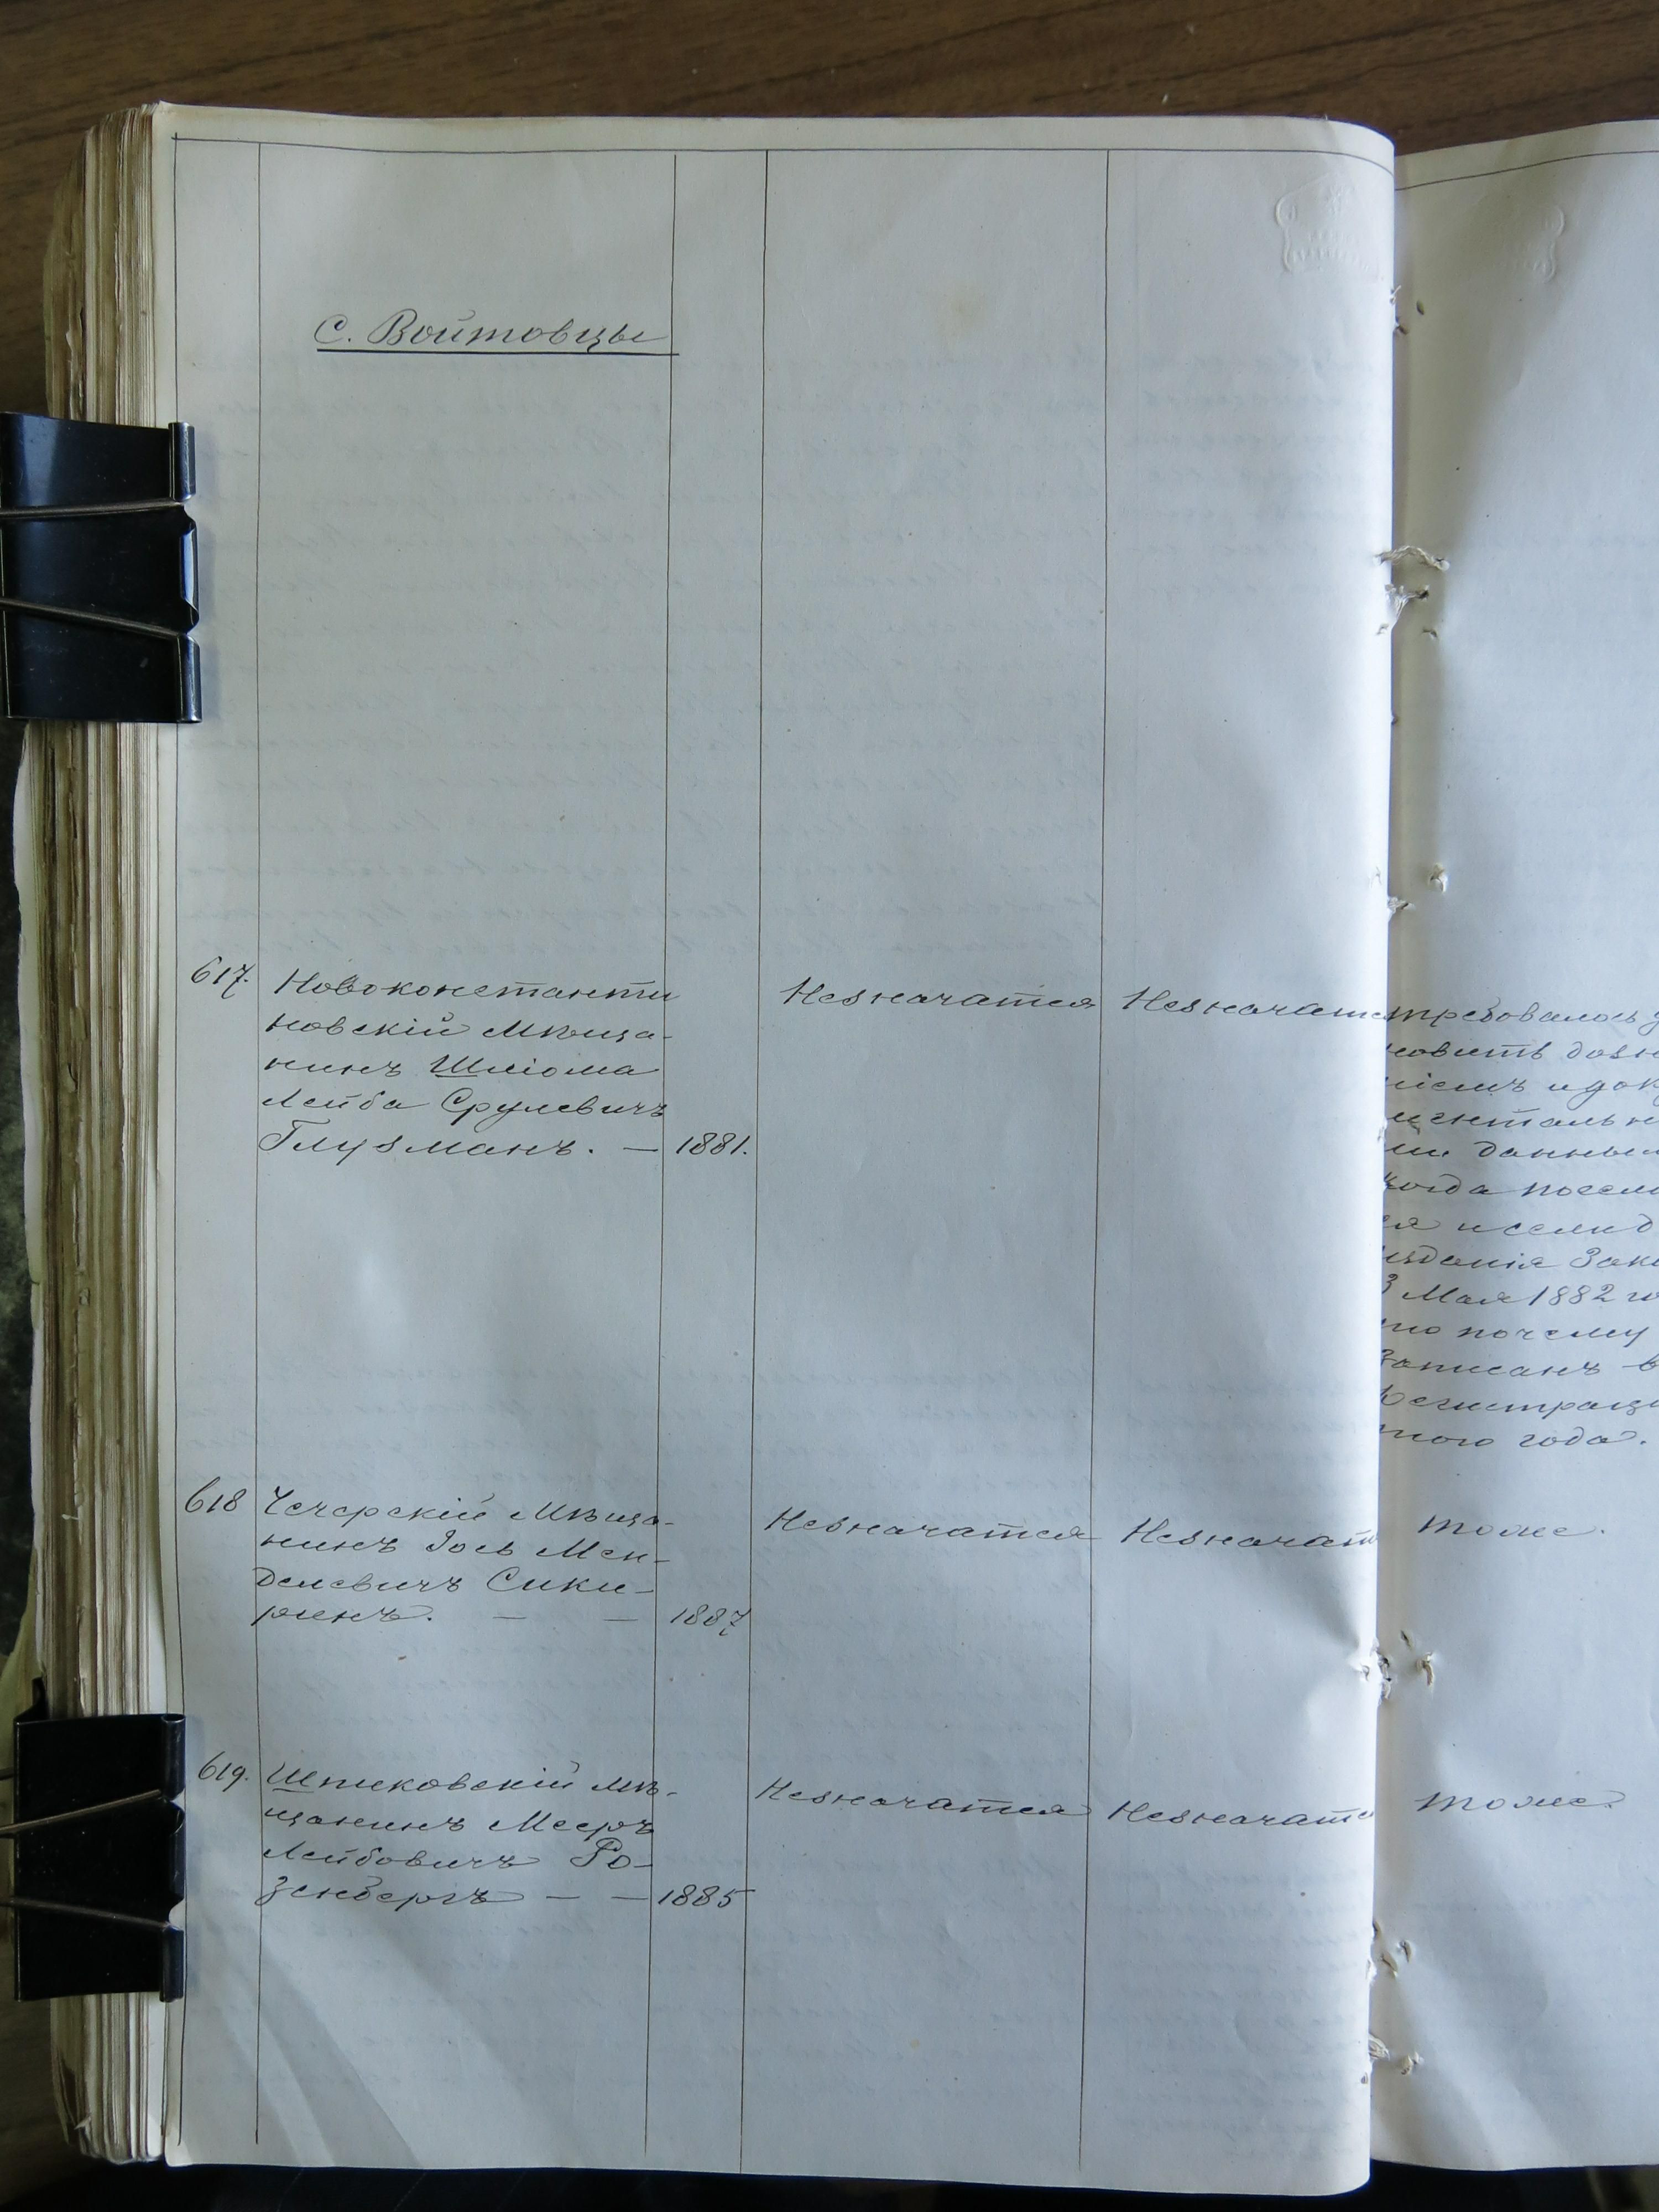 С. Войтовцы
617. Новоконстанти
новскій Мѣща-
нинъ Шліома
Лейба Срулевичъ
Глузманъ. — 1881.
Незначатся
Незначатс
требовалось у
новить дозн
ніемъ и док
ментальн
ми данным
когда посели
ся и если д
изданія Зако
3 Мая 1882 го
то почему
записанъ в
Регистраці
того года.
618 Чечерскій Мѣща-
нинъ Іось Мен-
делевичъ Сики-
ринъ. — — 1887
Незначатся
Незначат
тоже.
619. Шпиковскій мѣ-
щанинъ Мееръ
Лейбовичъ Ро-
зенбергъ — — 1885
Незначатся
Незначатс
тоже.